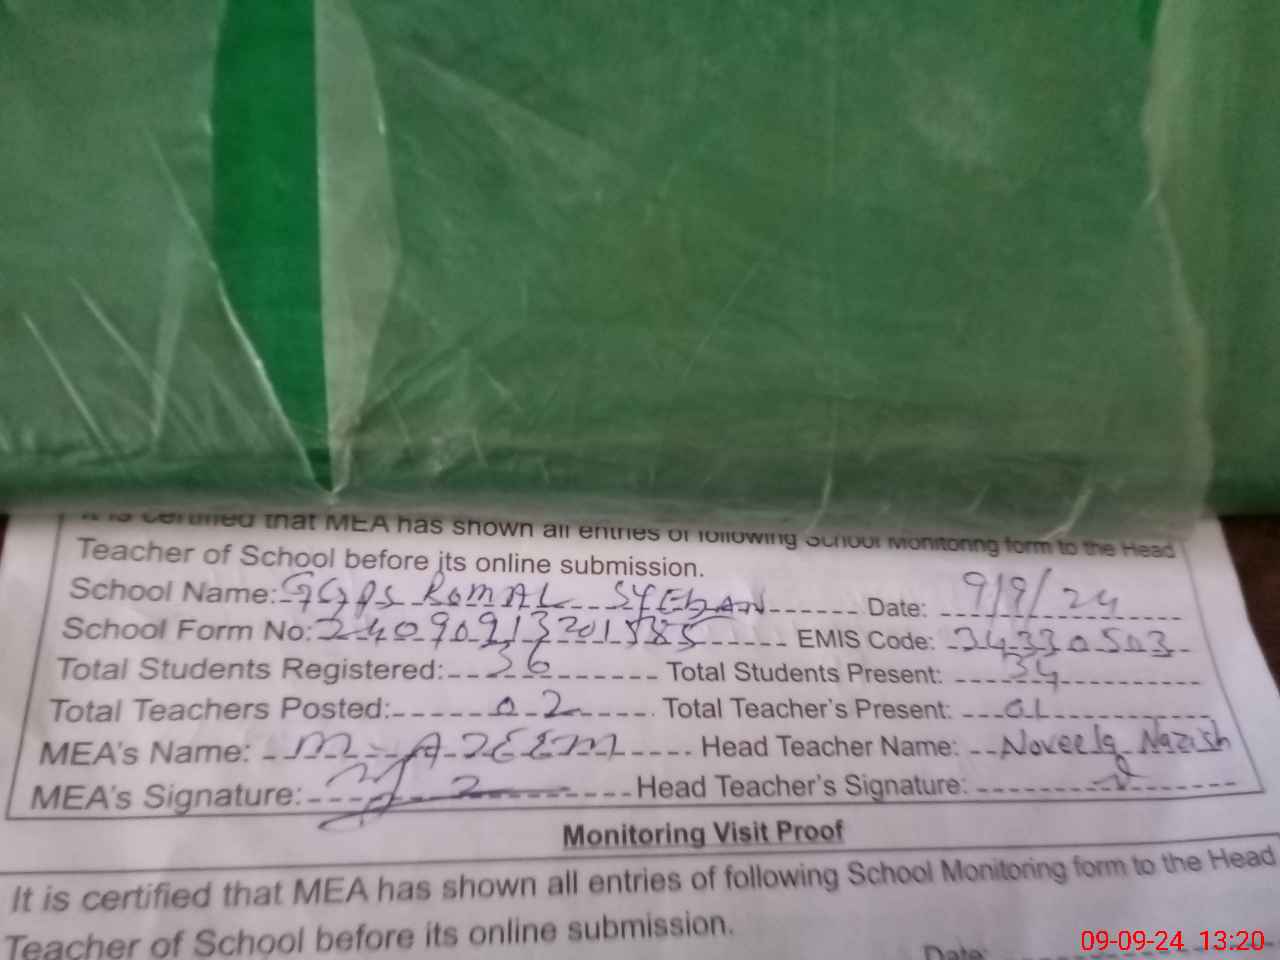 It is certified that MEA has shown all entries of following School Monitoring form to the Head
Teacher of School before its online submission.
School Name: GGPS Romal Syedan Date: 9/9/24
School Form No: 24090913201585 EMIS Code: 34330503
Total Students Registered: 36 Total Students Present: 34
Total Teachers Posted: 02 Total Teacher's Present: 01
MEA's Name: M. AZEEM Head Teacher Name: Noveela Nazish
MEA's Signature: Head Teacher's Signature:
Monitoring Visit Proof
It is certified that MEA has shown all entries of following School Monitoring form to the Head
Teacher of School before its online submission.
Date:
09-09-24 13:20